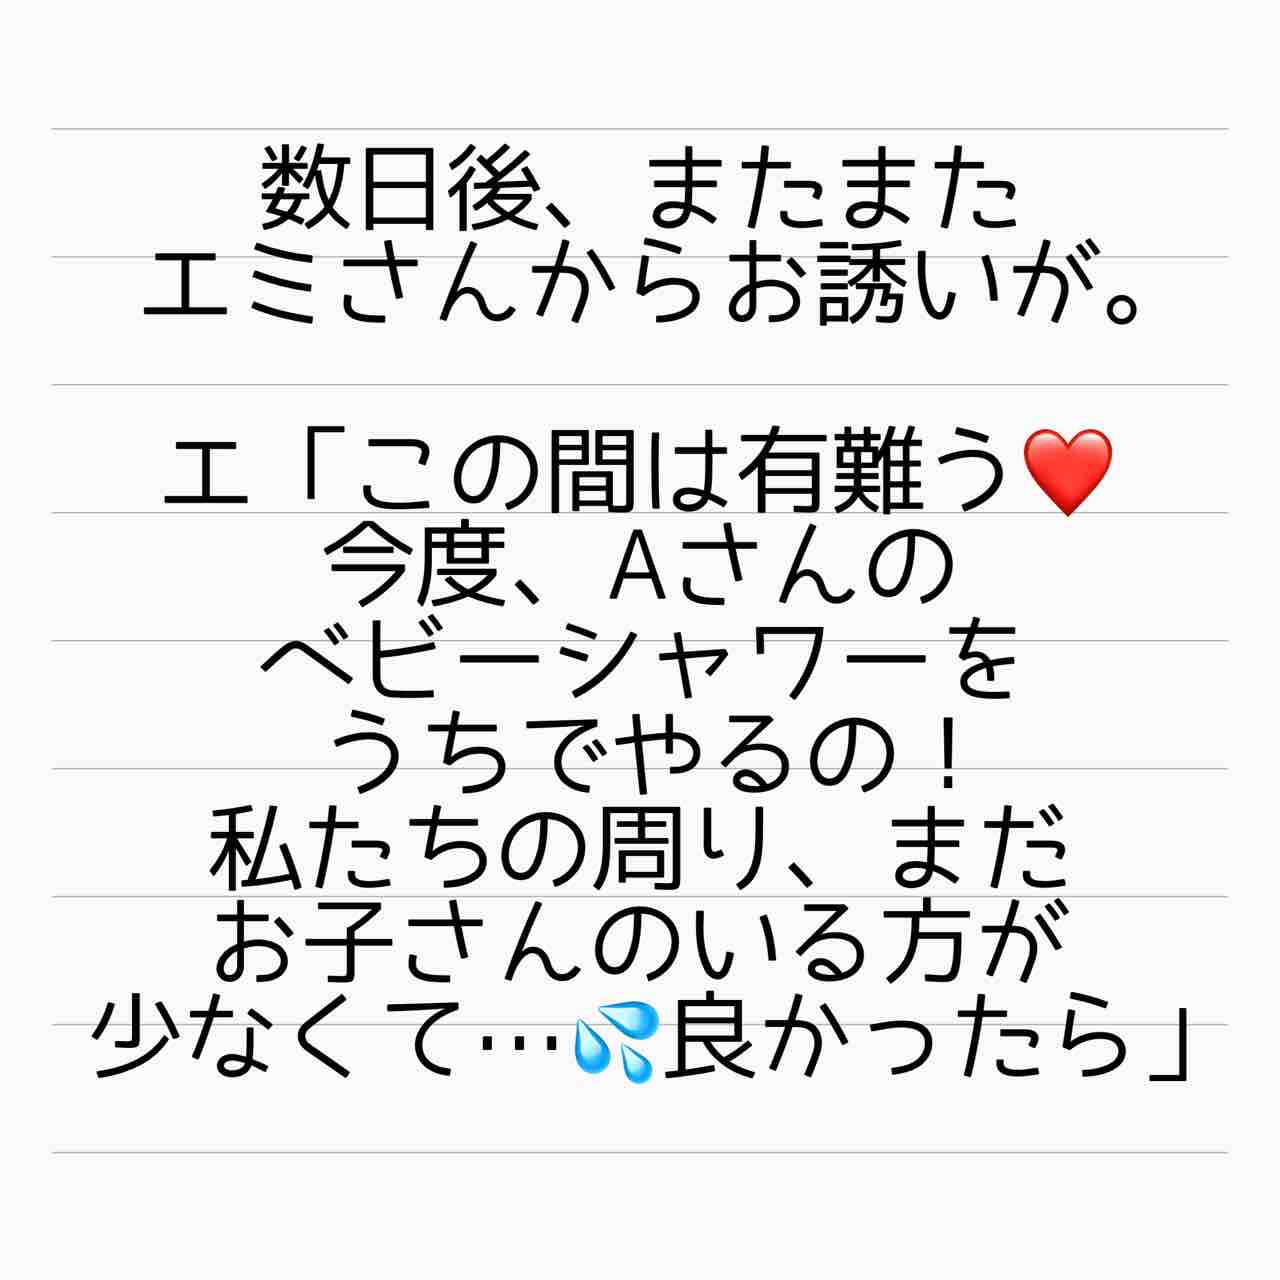 数日後、またまた
エミさんからお誘いが。
エ「この間は有難う❤️
今度、Aさんの
ベビーシャワーを
うちでやるの！
私たちの周り、まだ
お子さんのいる方が
少なくて…💦良かったら」